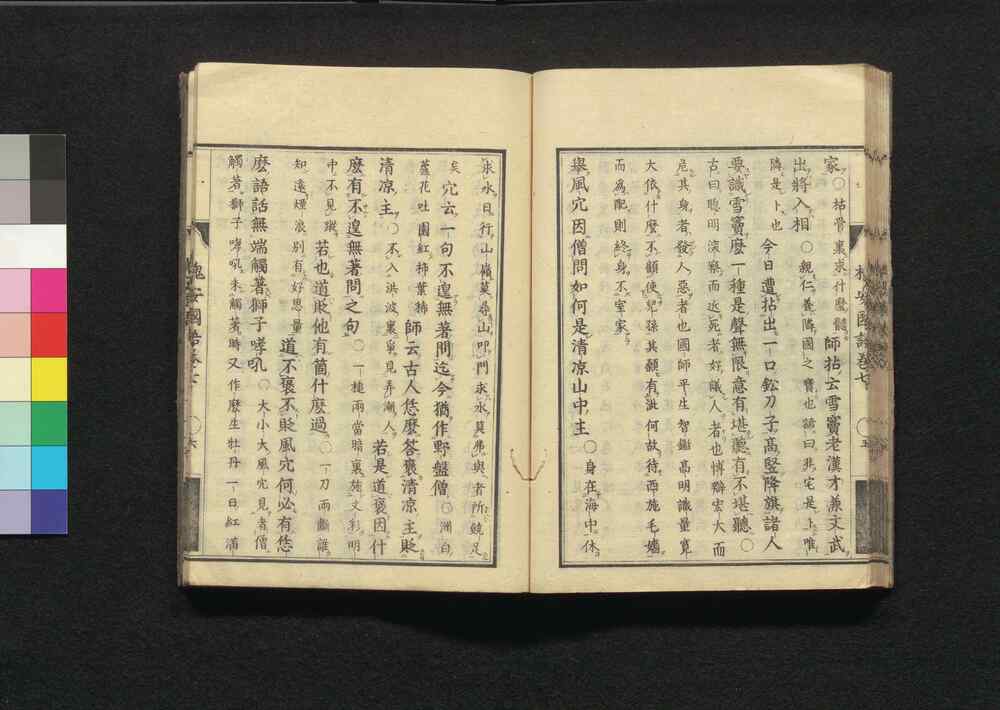 家○枯骨裏求什麼髓師拈云雪竇老漢才兼文武
出將入相○親仁善隣國之寶也諺曰非宅是卜唯
隣是卜也今日遭拈出一口鉛刀子高竪降旗諸人
要識雪竇麼一種是聲無限意有堪聽有不堪聽○
古曰聰明深察而近死者好議人者也博辯宏大而
危其身者發人惡者也國師平生智鑑高明識量寬
大依什麼不顧使卑孫其顏有泚何故待西施毛嬙
而爲配則終身不室家
擧風穴因僧問如何是清凉山中主○身在海中休
求水日行山嶺莫尋山叩門求水莫弗與者所饒足
矣穴云一句不遑無著問迄今猶作野盤僧○洲白
蘆花吐園紅柿葉稀師云古人恁麼答褒清凉主貶
清凉主○不入洪波裏爭見弄潮人若是道褒因什
麼有不遑無著問之句○一槌兩當暗裏施文彩明
中不見蹤若也道貶他有箇什麼過○一刀兩斷誰
知遠煙浪別有好思量道不褒不貶風穴何必有恁
麼語話無端觸著獅子哮吼○大小大風穴見者僧
觸著獅子哮吼未觸著時又作麼生牡丹一日紅滿
槐安國語卷七
五
槐安國語卷七
六